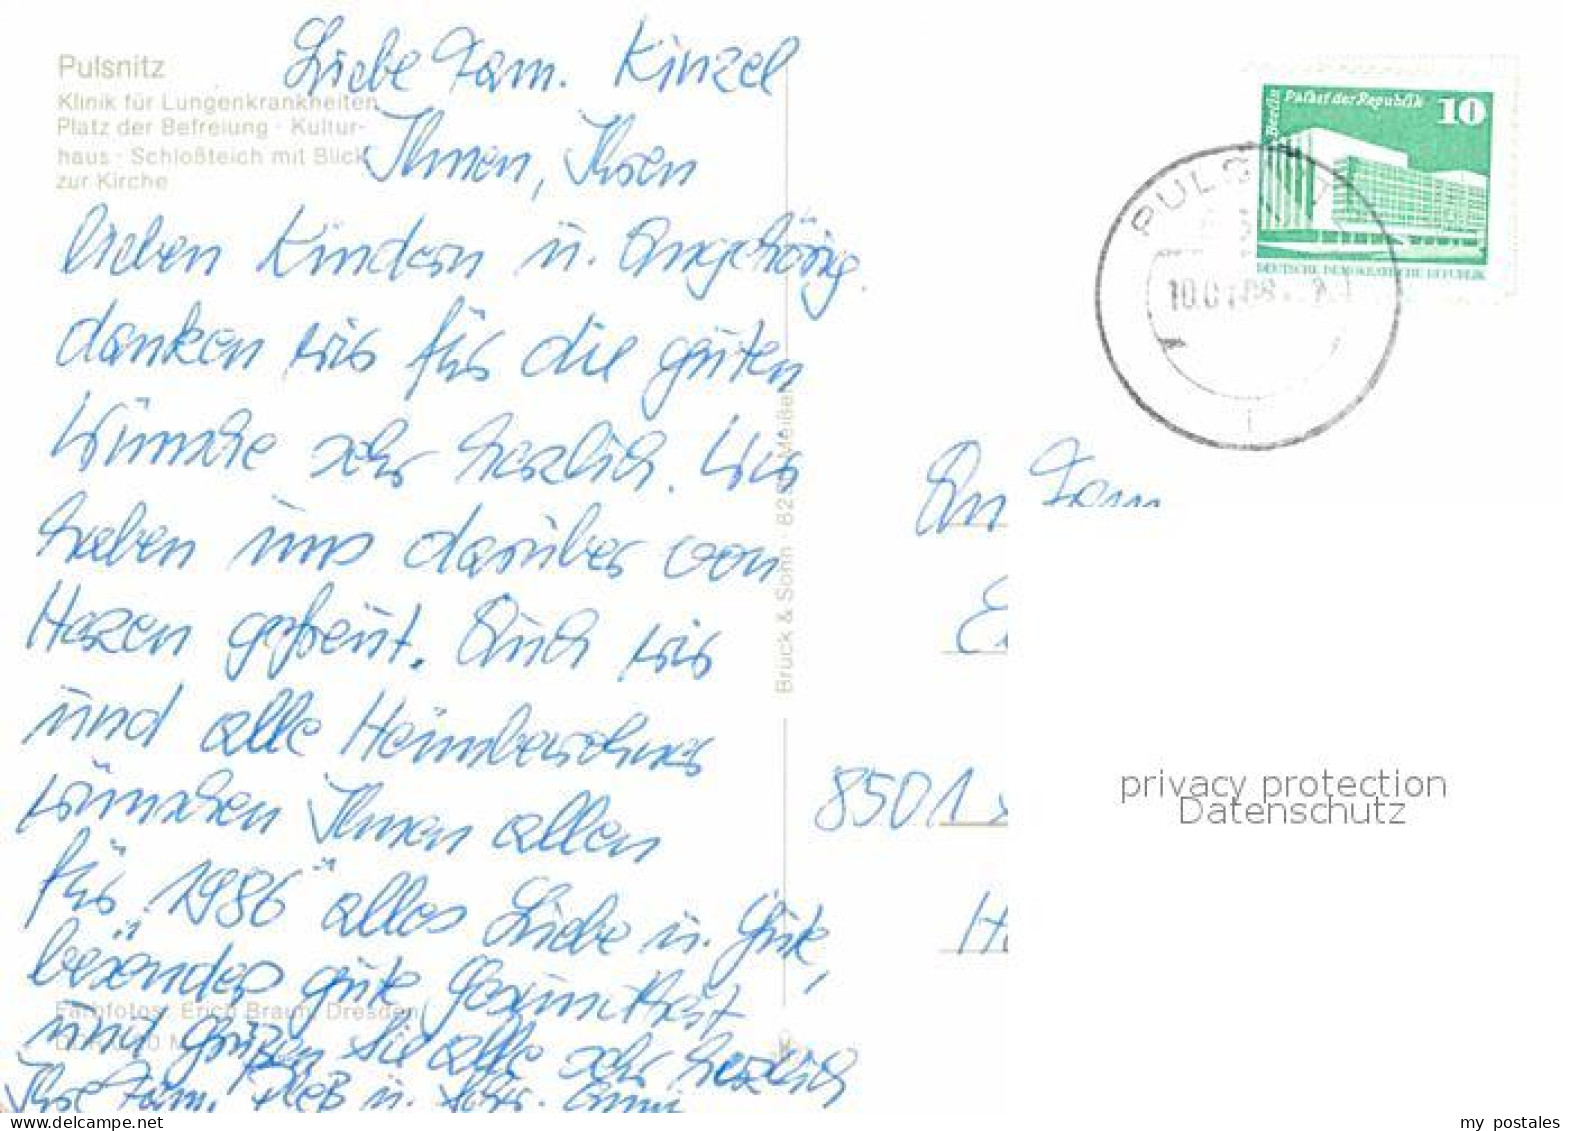 Pulsnitz
Klinik für Lungenkrankheiten
Platz der Befreiung · Kultur-
haus · Schloßteich mit Blick
zur Kirche
Liebe Fam. Kinzel
Ihnen, Ihren
lieben Kindern u. Angehörig.
danken wir für die guten
Wünsche sehr herzlich. Wir
haben uns darüber von
Herzen gefreut. Auch wir
und alle Heimbewohner
wünschen Ihnen allen
für 1986 alles Liebe u. Gute,
besonders gute Gesundheit
und grüßen Sie alle sehr herzlich
Ihre Fam. u. Schw.
Farbfotos: Erich Braun, Dresden
Brück & Sonn · Meißen
Berlin Palast der Republik 10
DEUTSCHE DEMOKRATISCHE REPUBLIK
An Fam
8501
privacy protection
Datenschutz
my postales